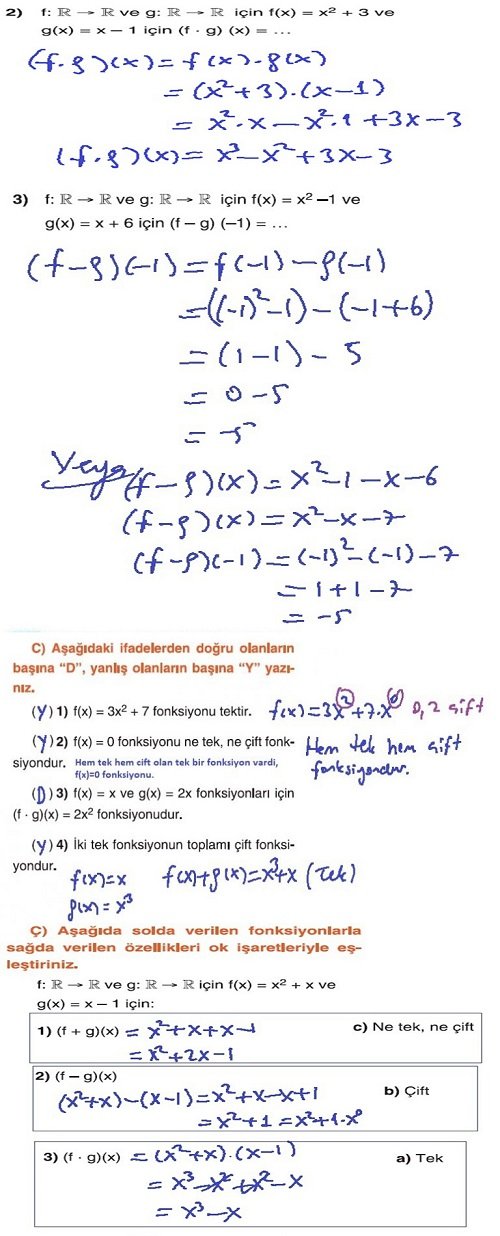 2) f: ℝ → ℝ ve g: ℝ → ℝ için f(x) = x² + 3 ve
g(x) = x − 1 için (f · g) (x) = ...
(f·g)(x) = f(x)·g(x)
= (x²+3)·(x−1)
= x²·x − x²·1 + 3x − 3
(f·g)(x) = x³ − x² + 3x − 3
3) f: ℝ → ℝ ve g: ℝ → ℝ için f(x) = x² −1 ve
g(x) = x + 6 için (f − g) (−1) = ...
(f−g)(−1) = f(−1) − g(−1)
= ((−1)²−1) − (−1+6)
= (1−1) − 5
= 0 − 5
= −5
Veya (f−g)(x) = x²−1−x−6
(f−g)(x) = x²−x−7
(f−g)(−1) = (−1)²−(−1)−7
= 1+1−7
= −5
C) Aşağıdaki ifadelerden doğru olanların
başına “D”, yanlış olanların başına “Y” yazı-
nız.
(Y) 1) f(x) = 3x² + 7 fonksiyonu tektir. f(x)=3x²+7·x⁰ 0,2 çift
(Y) 2) f(x) = 0 fonksiyonu ne tek, ne çift fonk- Hem tek hem çift
siyondur. Hem tek hem cift olan tek bir fonksiyon vardi, fonksiyondur.
f(x)=0 fonksiyonu.
(D) 3) f(x) = x ve g(x) = 2x fonksiyonları için
(f · g)(x) = 2x² fonksiyonudur.
(Y) 4) İki tek fonksiyonun toplamı çift fonksi-
yondur.
f(x)=x f(x)+g(x)=x³+x (Tek)
g(x)=x³
Ç) Aşağıda solda verilen fonksiyonlarla
sağda verilen özellikleri ok işaretleriyle eş-
leştiriniz.
f: ℝ → ℝ ve g: ℝ → ℝ için f(x) = x² + x ve
g(x) = x − 1 için:
1) (f + g)(x) = x²+x+x−1 c) Ne tek, ne çift
= x²+2x−1
2) (f − g)(x)
(x²+x)−(x−1)=x²+x−x+1 b) Çift
= x²+1 = x²+1·x⁰
3) (f · g)(x) = (x²+x)·(x−1) a) Tek
= x³−x²+x²−x
= x³−x